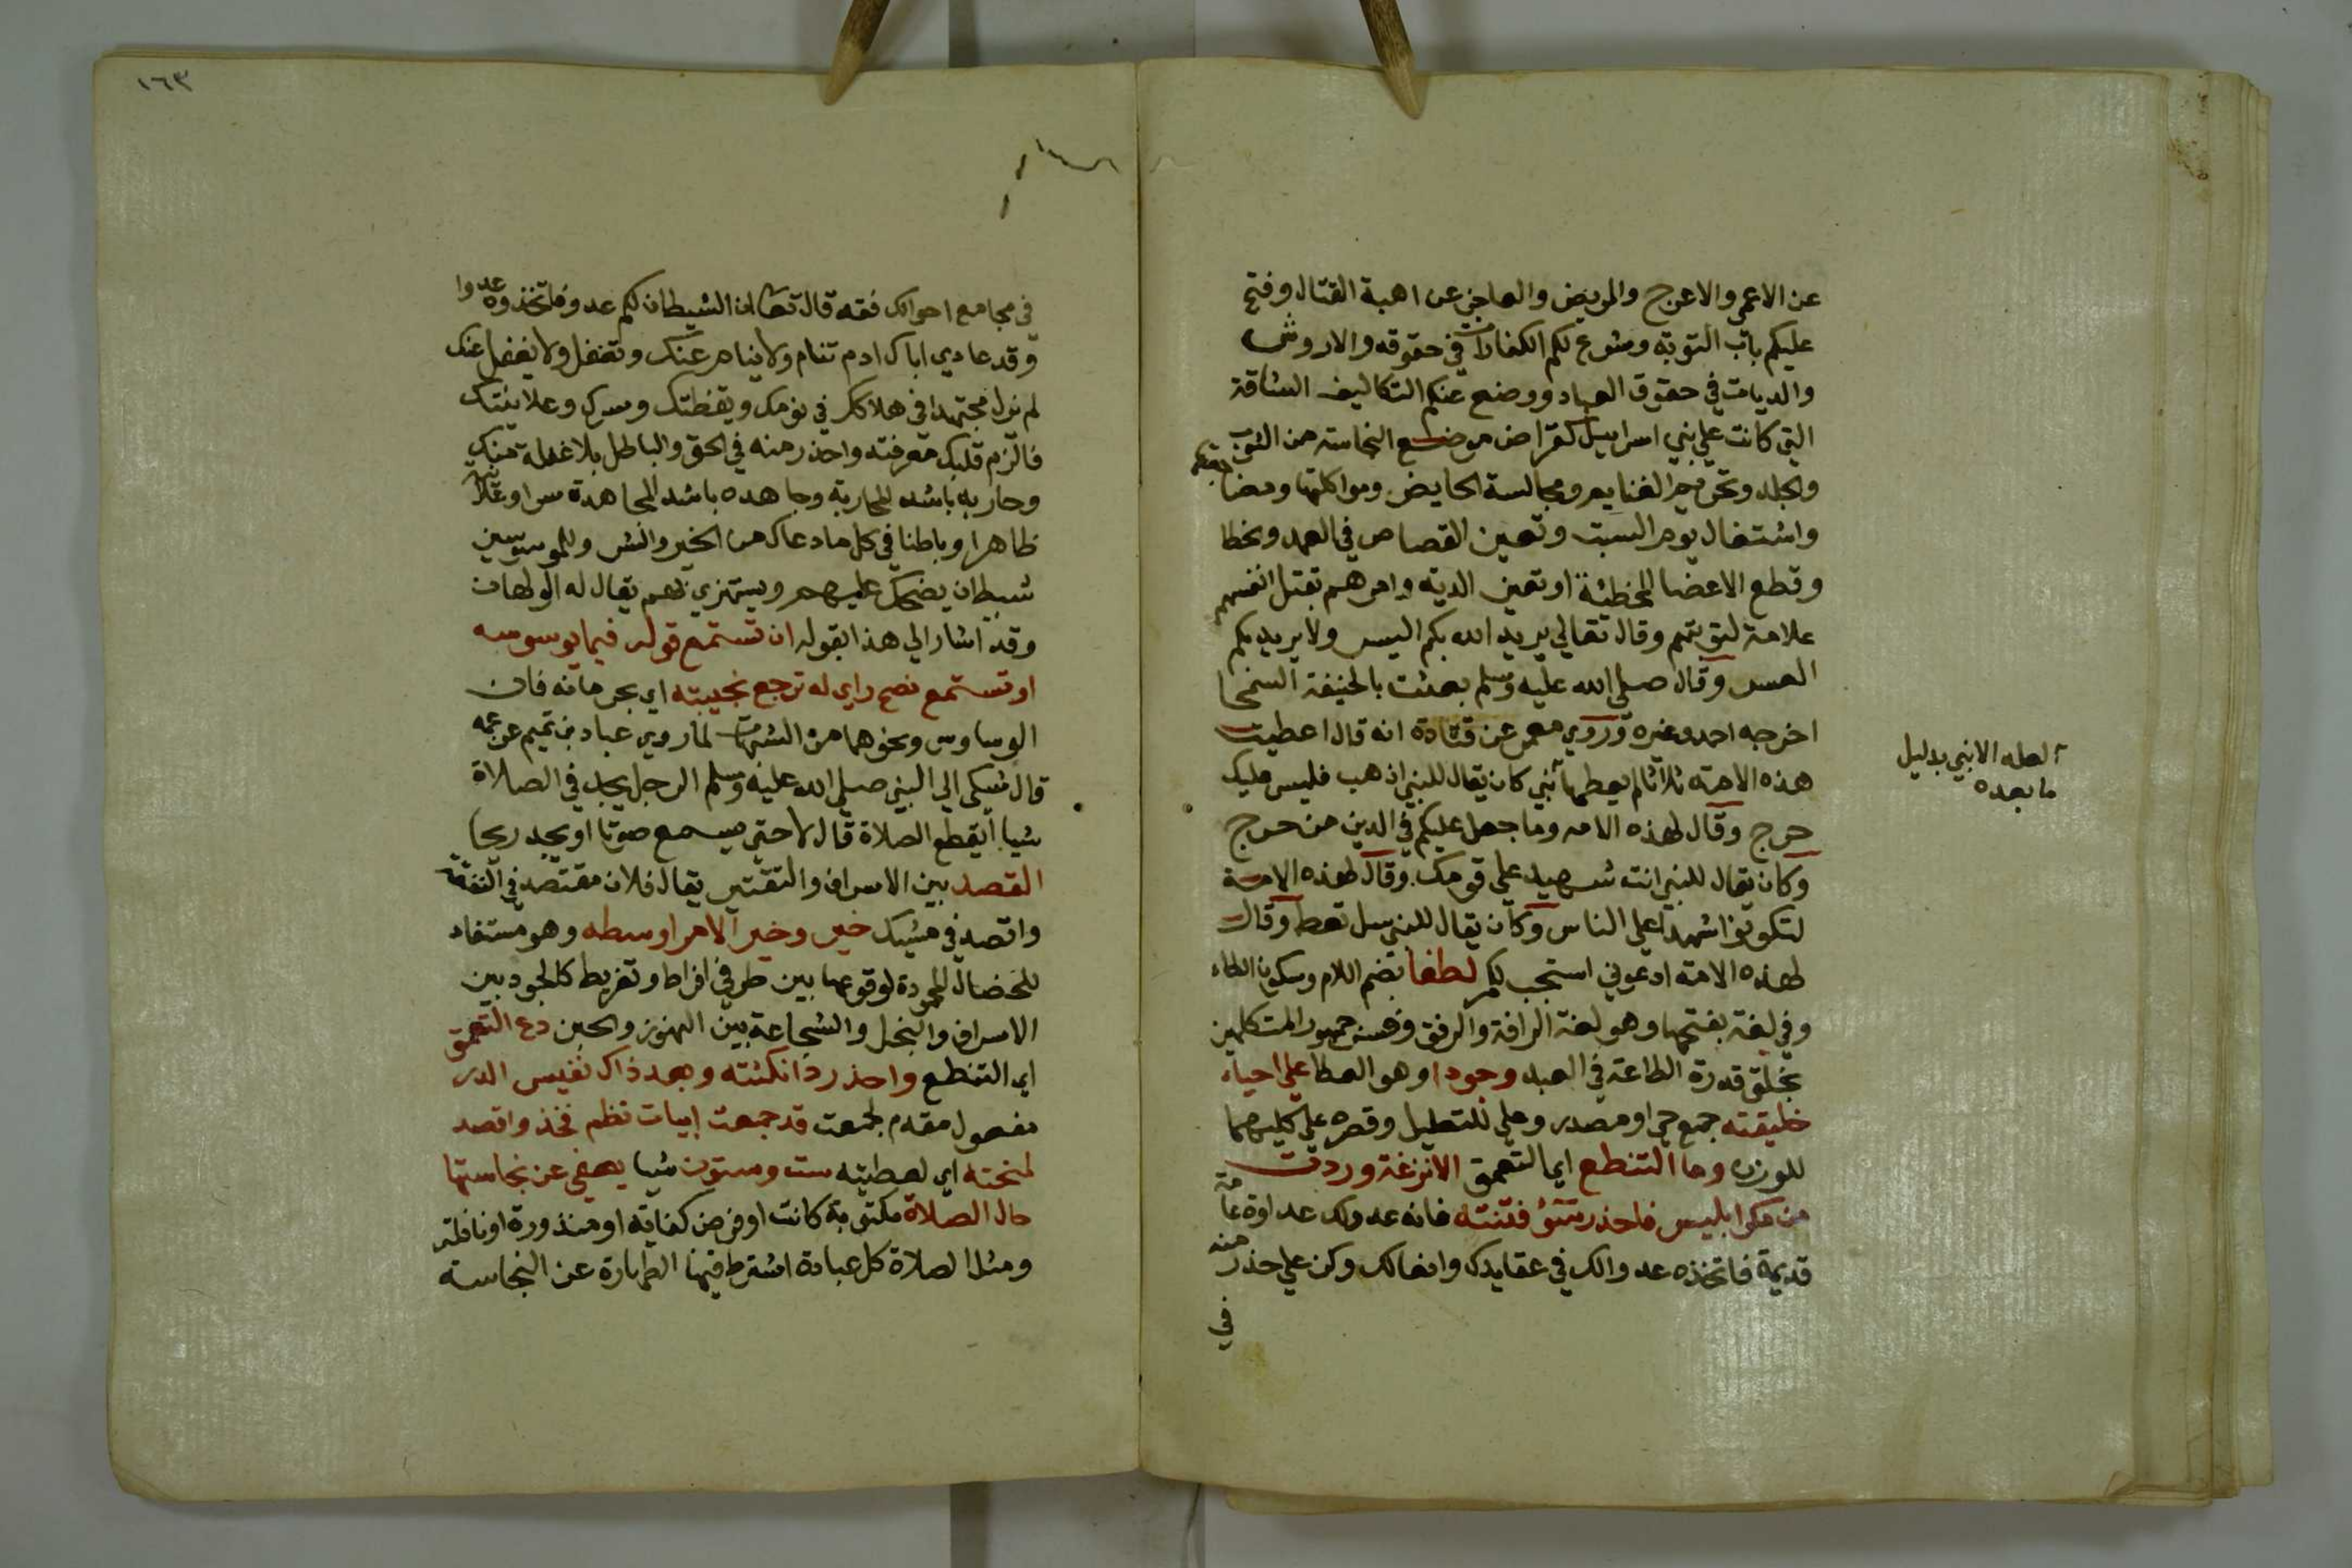 عن الاعمي والاعرج والمريض والعاجز عن اهبة القتال وفتح
عليكم باب التوبة وشرع لكم الكفارات في حقوقه والاروش
والديات في حقوق العباد ووضع عنكم التكاليف الشاقة
التي كانت علي بني اسراييل كقراض موضع النجاسة من الثوب
والجلد وتحريم الغنايم ومجالسة الحايض ومواكلتها ومضاجعتها
واشتغال يوم السبت وتعين القصاص في العمد والخطا
وقطع الاعضا المخطئة او تعين الدية وامرهم بقتل انفسهم
علامة لتوبتهم وقال تعالي يريد الله بكم اليسر ولا يريد بكم
العسر وقال صلي الله عليه وسلم بعثت بالحنيفة السمحا
اخرجه احمد وغيره وروي معمر عن قتادة انه قال اعطيت
هذه الامة ثلاثا لم يعطها نبي كان يقال للنبي اذهب فليس عليك
حرج وقال لهذه الامه وما جعل عليكم في الدين من حرج
وكان يقال للنبي انت شهيد علي قومك وقال لهذه الامة
لتكونوا شهدا علي الناس وكان يقال للنبي سل تعط وقال
لهذه الامة ادعوني استجب لكم لطفا بضم اللام وسكون الطاء
وفي لغة بفتحها وهو لغة الرافة والرفق وفسر جمهور المتكلمين
بخلق قدرة الطاعة في العبد وجودا وهو العطا علي احياء
خليقته جمع حي او مصدر وعلي للتعليل وقصره علي كليهما
للوزن وما التنطع اي التعمق الا نزغة وردت
من مكر ابليس فاحذر سوء فتنته فانه عدو لك عداوة عامة
قديمة فاتخذه عدوا لك في عقايدك وافعالك وكن علي حذر منه
في
العله الا نبي بدليل
ما بعده
١٦٣
في مجامع احوالك فقه قال تعالي ان الشيطان لكم عدو فاتخذوه عدوا
وقد عادي اباك ادم تنام ولا ينام عنك وتغفل ولا يغفل عنك
لم يزل مجتهدا في هلاكك في نومك ويقظتك وسرك وعلانيتك
فالزم قلبك معرفته واحذر منه في الحق والباطل بلا غفلة منك
وحاربه باشد المحاربة وجاهده باشد المجاهدة سرا وعلانية
ظاهرا وباطنا في كل ما دعاك من الخير والشر وللموسوسين
شيطان يضحك عليهم ويستهزي بهم يقال له الولهان
وقد اشار الي هذا بقوله ان تستمع قوله فيما يوسوسه
او تستمع نصح راي له ترجع بخيبته اي بحرمانه فان
الوساوس ونحوها من الشبهات لما روي عباد بن تميم عن عمه
قال شكي الي النبي صلي الله عليه وسلم الرجل يجد في الصلاة
شيا ايقطع الصلاة قال لا حتي يسمع صوتا او يجد ريحا
القصد بين الاسراف والتقتير يقال فلان مقتصد في النفقة
واقصد في مشيك خير وخير الامر اوسطه وهو مستفاد
للخصال المحمودة لوقوعها بين طرفي افراط وتفريط كالجود بين
الاسراف والبخل والشجاعة بين التهور والجبن دع التعمق
اي التنطع واحذر دا نكثته وبعد ذاك نفيس الدر
مفعول مقدم لجمعت قد جمعت ابيات نظم فخذ واقصد
لمنحته اي لعطيته ست وستون شيا يعفي عن نجاستها
حال الصلاة مكتوبة كانت او فرض كفاية او منذورة او نافلة
ومثل الصلاة كل عبادة اشترط فيها الطهارة عن النجاسة